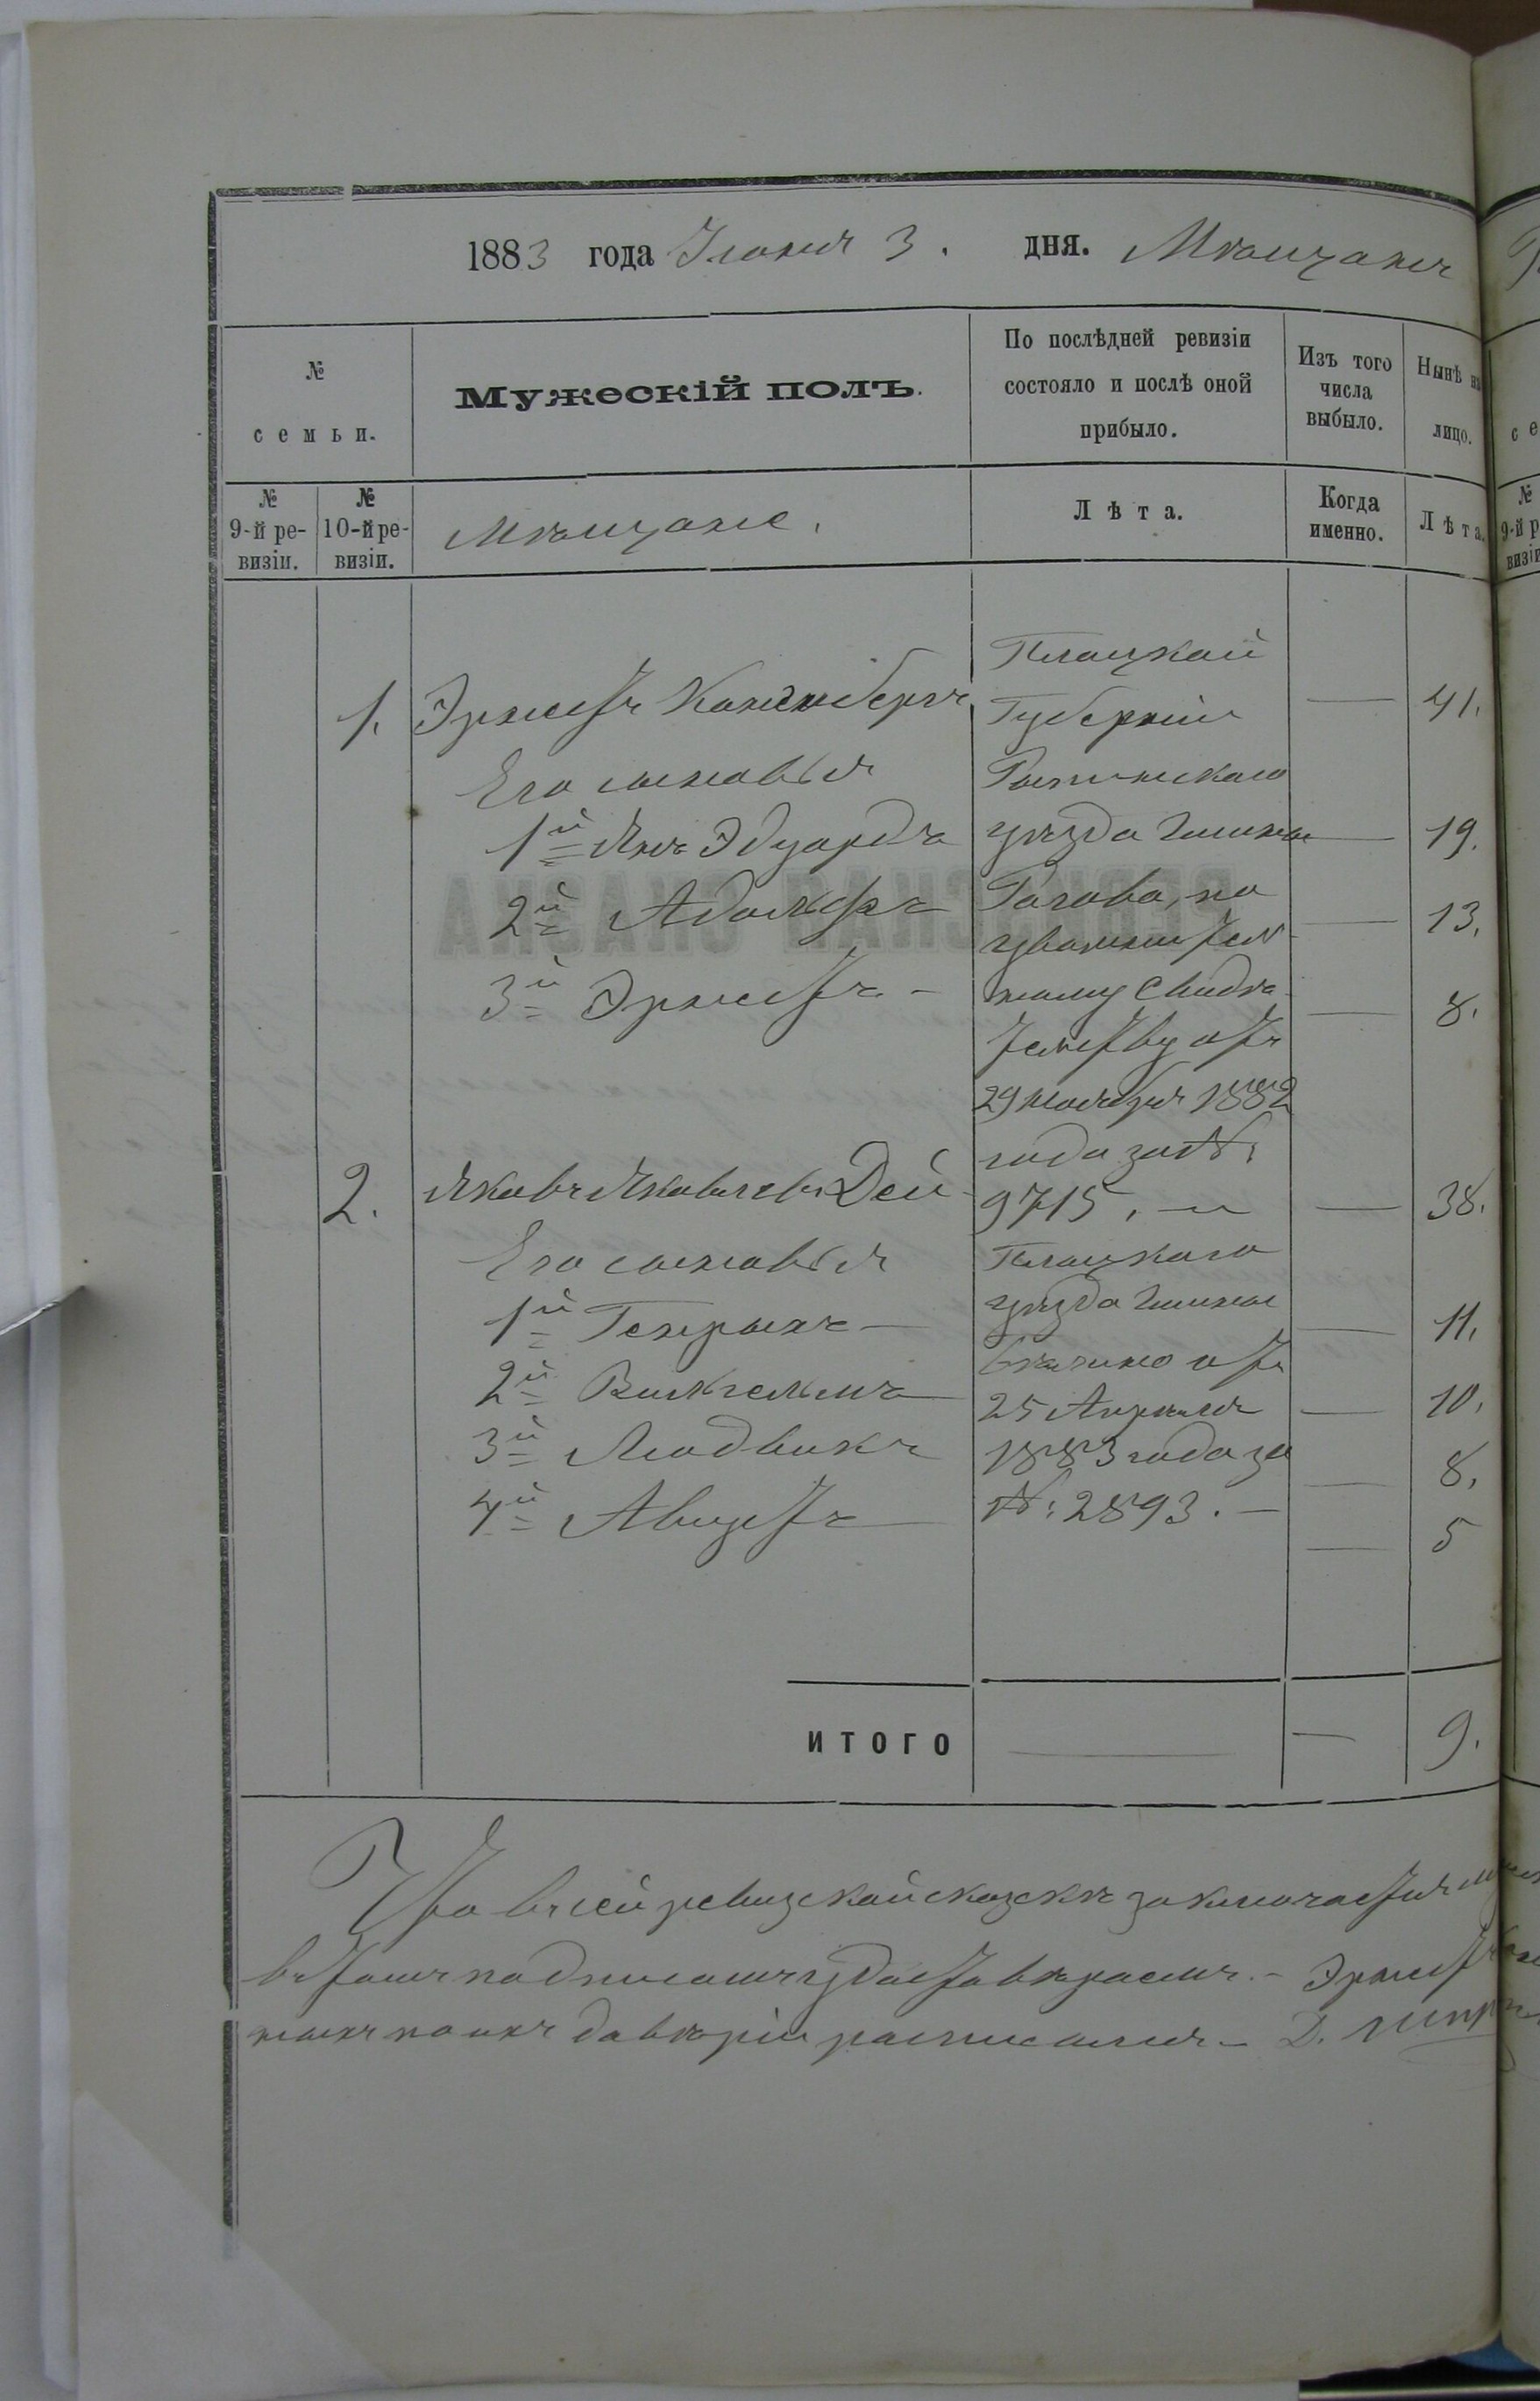 1883 года Іюня 3. дня. Мѣщанъ
№ семьи.
Мужескій полъ.
По послѣдней ревизіи состояло и послѣ оной прибыло.
Изъ того числа выбыло.
Нынѣ на лицо.
№ 9-й ревизіи.
№ 10-й ревизіи.
Мѣщане.
Лѣта.
Когда именно.
Лѣта.
Плоцкой
1. Эрнестъ Губерніи — 41.
Его сыновья
1й Янъ Эдуардъ уѣзда гмины — 19.
2й Адольфъ Гогово, по — 13.
увольнитель-
3й Эрнестъ - ному свидѣ- — 8.
тельству отъ
29 ноября 1882
года за №:
2. Яковъ Яковлевъ Дей 9715. — 38.
Его сыновья Плоцкаго
1й Генрыхъ — уѣзда гмины — 11.
отъ
2й Вильгельмъ — 25 Апрѣля — 10.
3й Людвикъ 1883 года за — 8.
4й Августъ — №: 2893. — — 5
ИТОГО — — 9.
Что въ сей ревизской сказскѣ заключается
въ томъ подписомъ удостовѣряемъ. - Эрнестъ
ныхъ по ихъ довѣрію росписался - Д.
РЕВИЗСКАЯ СКАЗКА